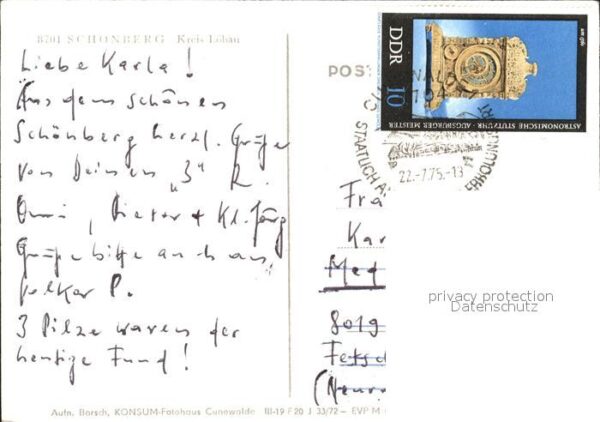 8701 SCHÖNBERG Kreis Löbau
Liebe Karla!
Aus dem schönen
Schönberg herzl. Grüße
von Deinen "3" R.
Omi, Dieter + Kl. Jörg
Grüße bitte auch an
Volker P.
3 Pilze waren der
heutige Fund!
POST
DDR 10
ASTRONOMISCHE STUTZUHR · AUGSBURGER MEISTER
um 1560
STAATLICH A
ERHOLUNGSORT
22.-7.75.-13
Fra
Kar
Med
8019
Fetsch
(Neur
privacy protection
Datenschutz
Aufn. Borsch, KONSUM-Fotohaus Cunewalde III-19 F 20 J 33/72 — EVP M